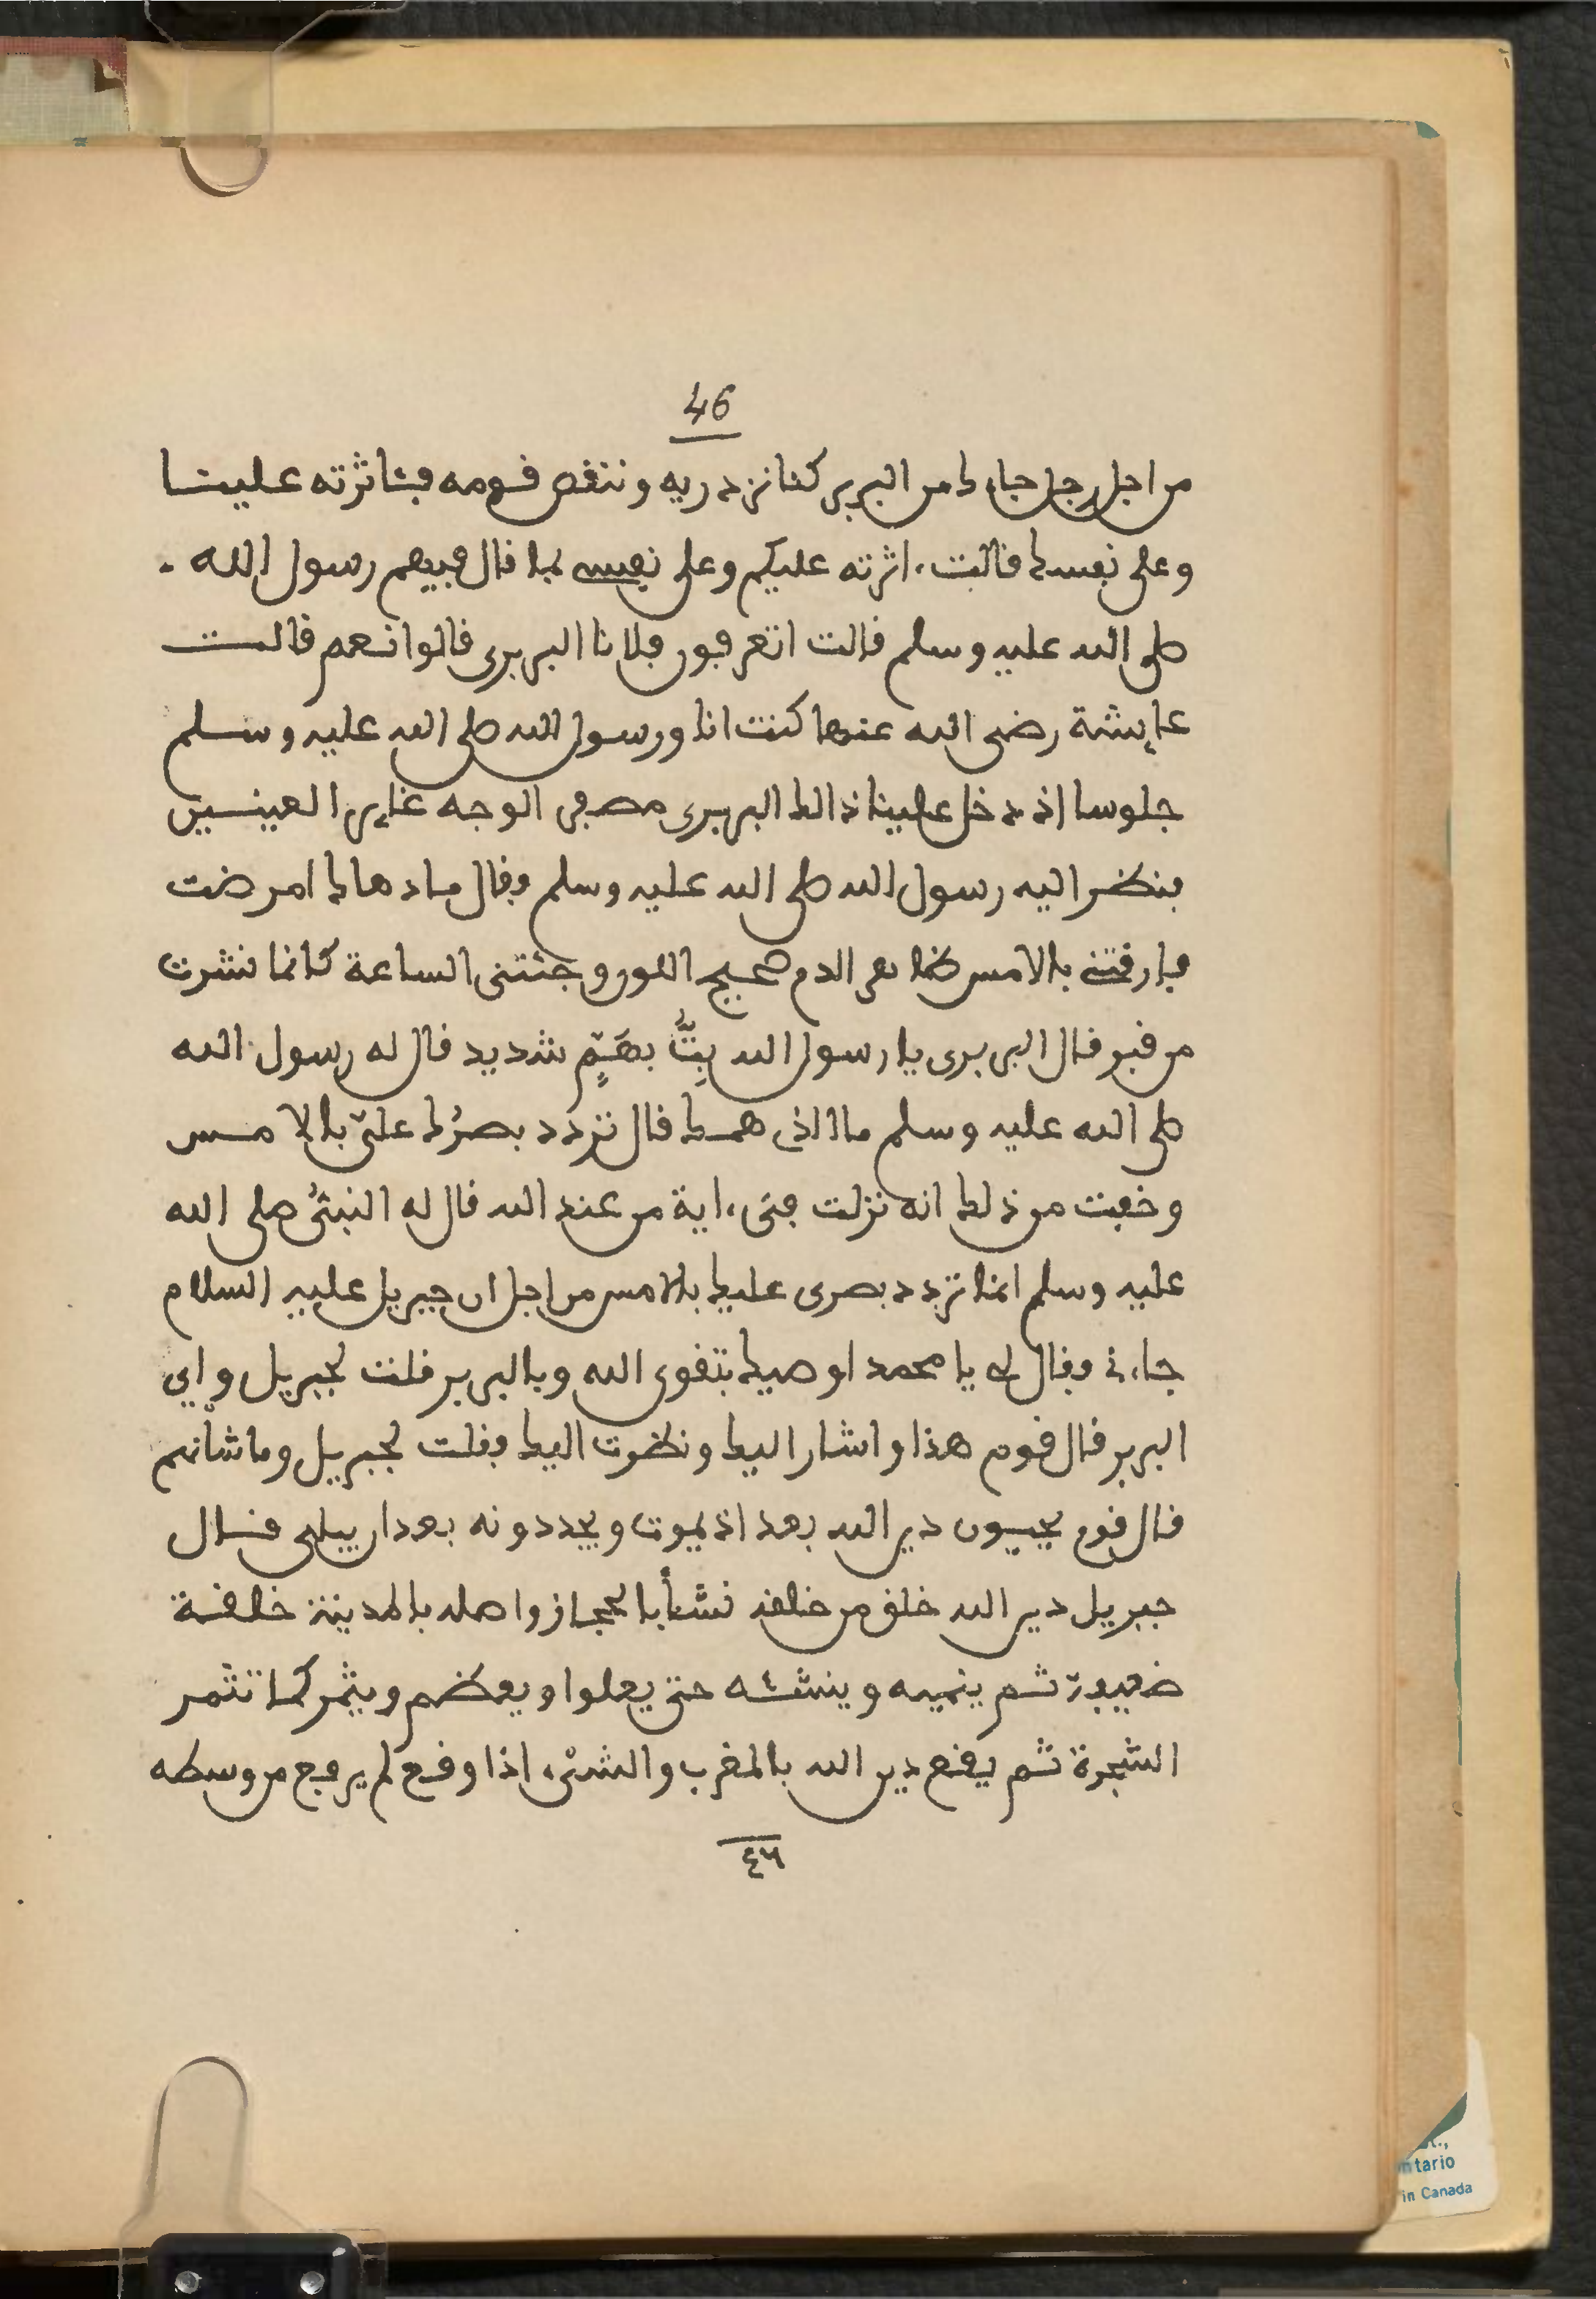 46
من اجل رجل جاءك من البربر كنا نزدريه وننقص قومه فئاثرته علينا
وعلى نفسك فالت ءاثرته عليكم وعلى نفسي لما قال فيهم رسول الله
صلى الله عليه وسلم قالت اتعرفون فلانا البربري قالوا نعم قالت
عايشة رضى الله عنها كنت انا ورسول الله صلى الله عليه وسلم
جلوسا اذ دخل علينا ذالك البربري مصفر الوجه غاير العينين
فنظر اليه رسول الله صلى الله عليه وسلم وفال ما دهاك امرضت
فارقتنى بالامس ظاهر الدم صحيح اللون وجئتنى الساعة كانما نشرت
من قبر قال البربرى يا رسول الله بِتُّ بهَمٍّ شديد قال له رسول الله
صلى الله عليه وسلم ما الذى همك قال تردد بصرُك علىّ بالامس
وخفت من ذلك انه نزلت فىّ ءاية من عند الله قال له النبىُّ صلى الله
عليه وسلم انما تردد بصرى عليك بالامس من اجل ان جبريل عليه السلام
جاءنى وقال لى يا محمد اوصيك بتقوى الله وبالبربر قلت لجبريل واي
البربر قال قوم هذا واشار اليك ونظرت اليك وقلت لجبريل وما شأنهم
قال قوم يحيون دين الله بعد اذ يموت ويجددونه بعد ان يبلى قال
جبريل دين الله خلق من خلقه نشأ بالحجاز واصله بالمدينة خلقة
ضعيفة ثم ينميه وينشئه حتى يعلوا ويعظم ويثمر كما تثمر
الشجرة ثم يقع دين الله بالمغرب والشىء اذا وقع لم يرفع من وسطه
٤٦
ntario
in Canada